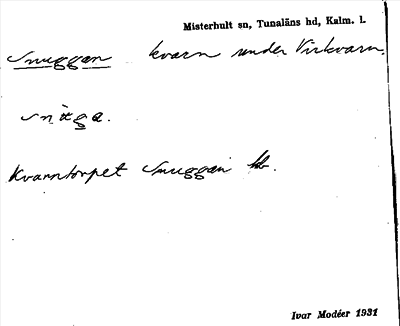 Misterhult sn, Tunaläns hd, Kalm. l.
Snuggan kvarn under Virkvarn.
Kvarntorpet Snuggan
Ivar Modéer 1931